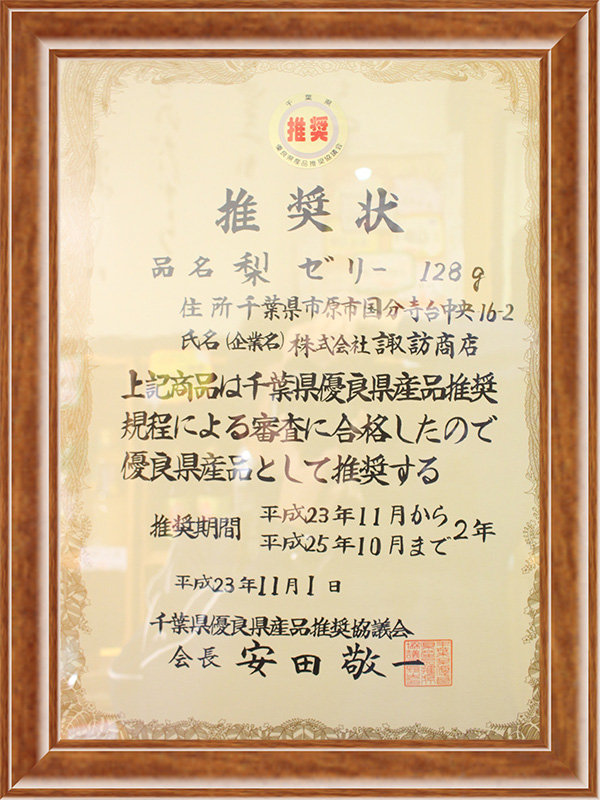 千葉県
推奨
優良県産品推奨協議会
推奨状
品名 梨 ゼリー 128g
住所 千葉県市原市国分寺台中央16-2
氏名(企業名) 株式会社諏訪商店
上記商品は千葉県優良県産品推奨
規程による審査に合格したので
優良県産品として推奨する
推奨期間 平成23年11月から
平成25年10月まで 2年
平成23年11月1日
千葉県優良県産品推奨協議会
会長 安田敬一